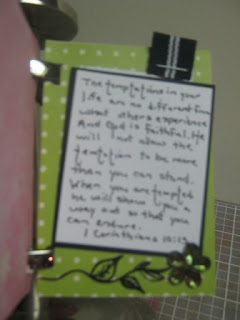 The temptations in your
life are no different from
what others experience
And God is faithful. He
will not allow the
temptation to be more
than you can stand.
When you are tempted
he will show you a
way out so that you
can endure.
1 Corinthians 10:13